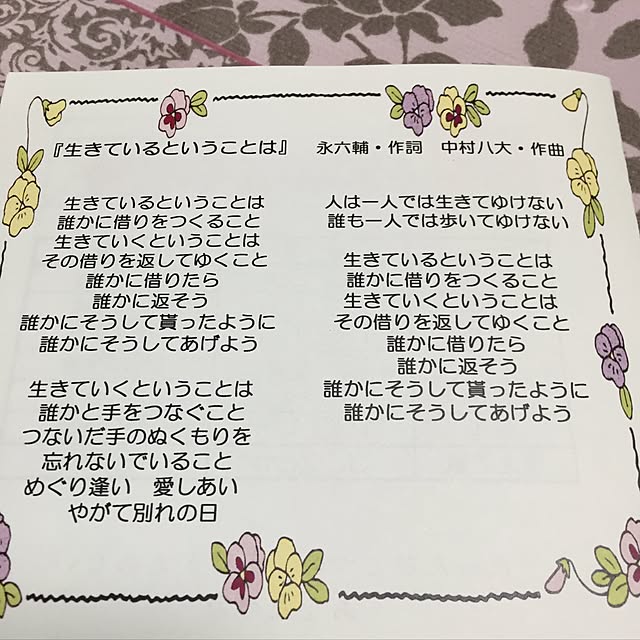 『生きているということは』　永六輔・作詞　中村八大・作曲
生きているということは
誰かに借りをつくること
生きていくということは
その借りを返してゆくこと
誰かに借りたら
誰かに返そう
誰かにそうして貰ったように
誰かにそうしてあげよう
生きていくということは
誰かと手をつなぐこと
つないだ手のぬくもりを
忘れないでいること
めぐり逢い　愛しあい
やがて別れの日
人は一人では生きてゆけない
誰も一人では歩いてゆけない
生きているということは
誰かに借りをつくること
生きていくということは
その借りを返してゆくこと
誰かに借りたら
誰かに返そう
誰かにそうして貰ったように
誰かにそうしてあげよう